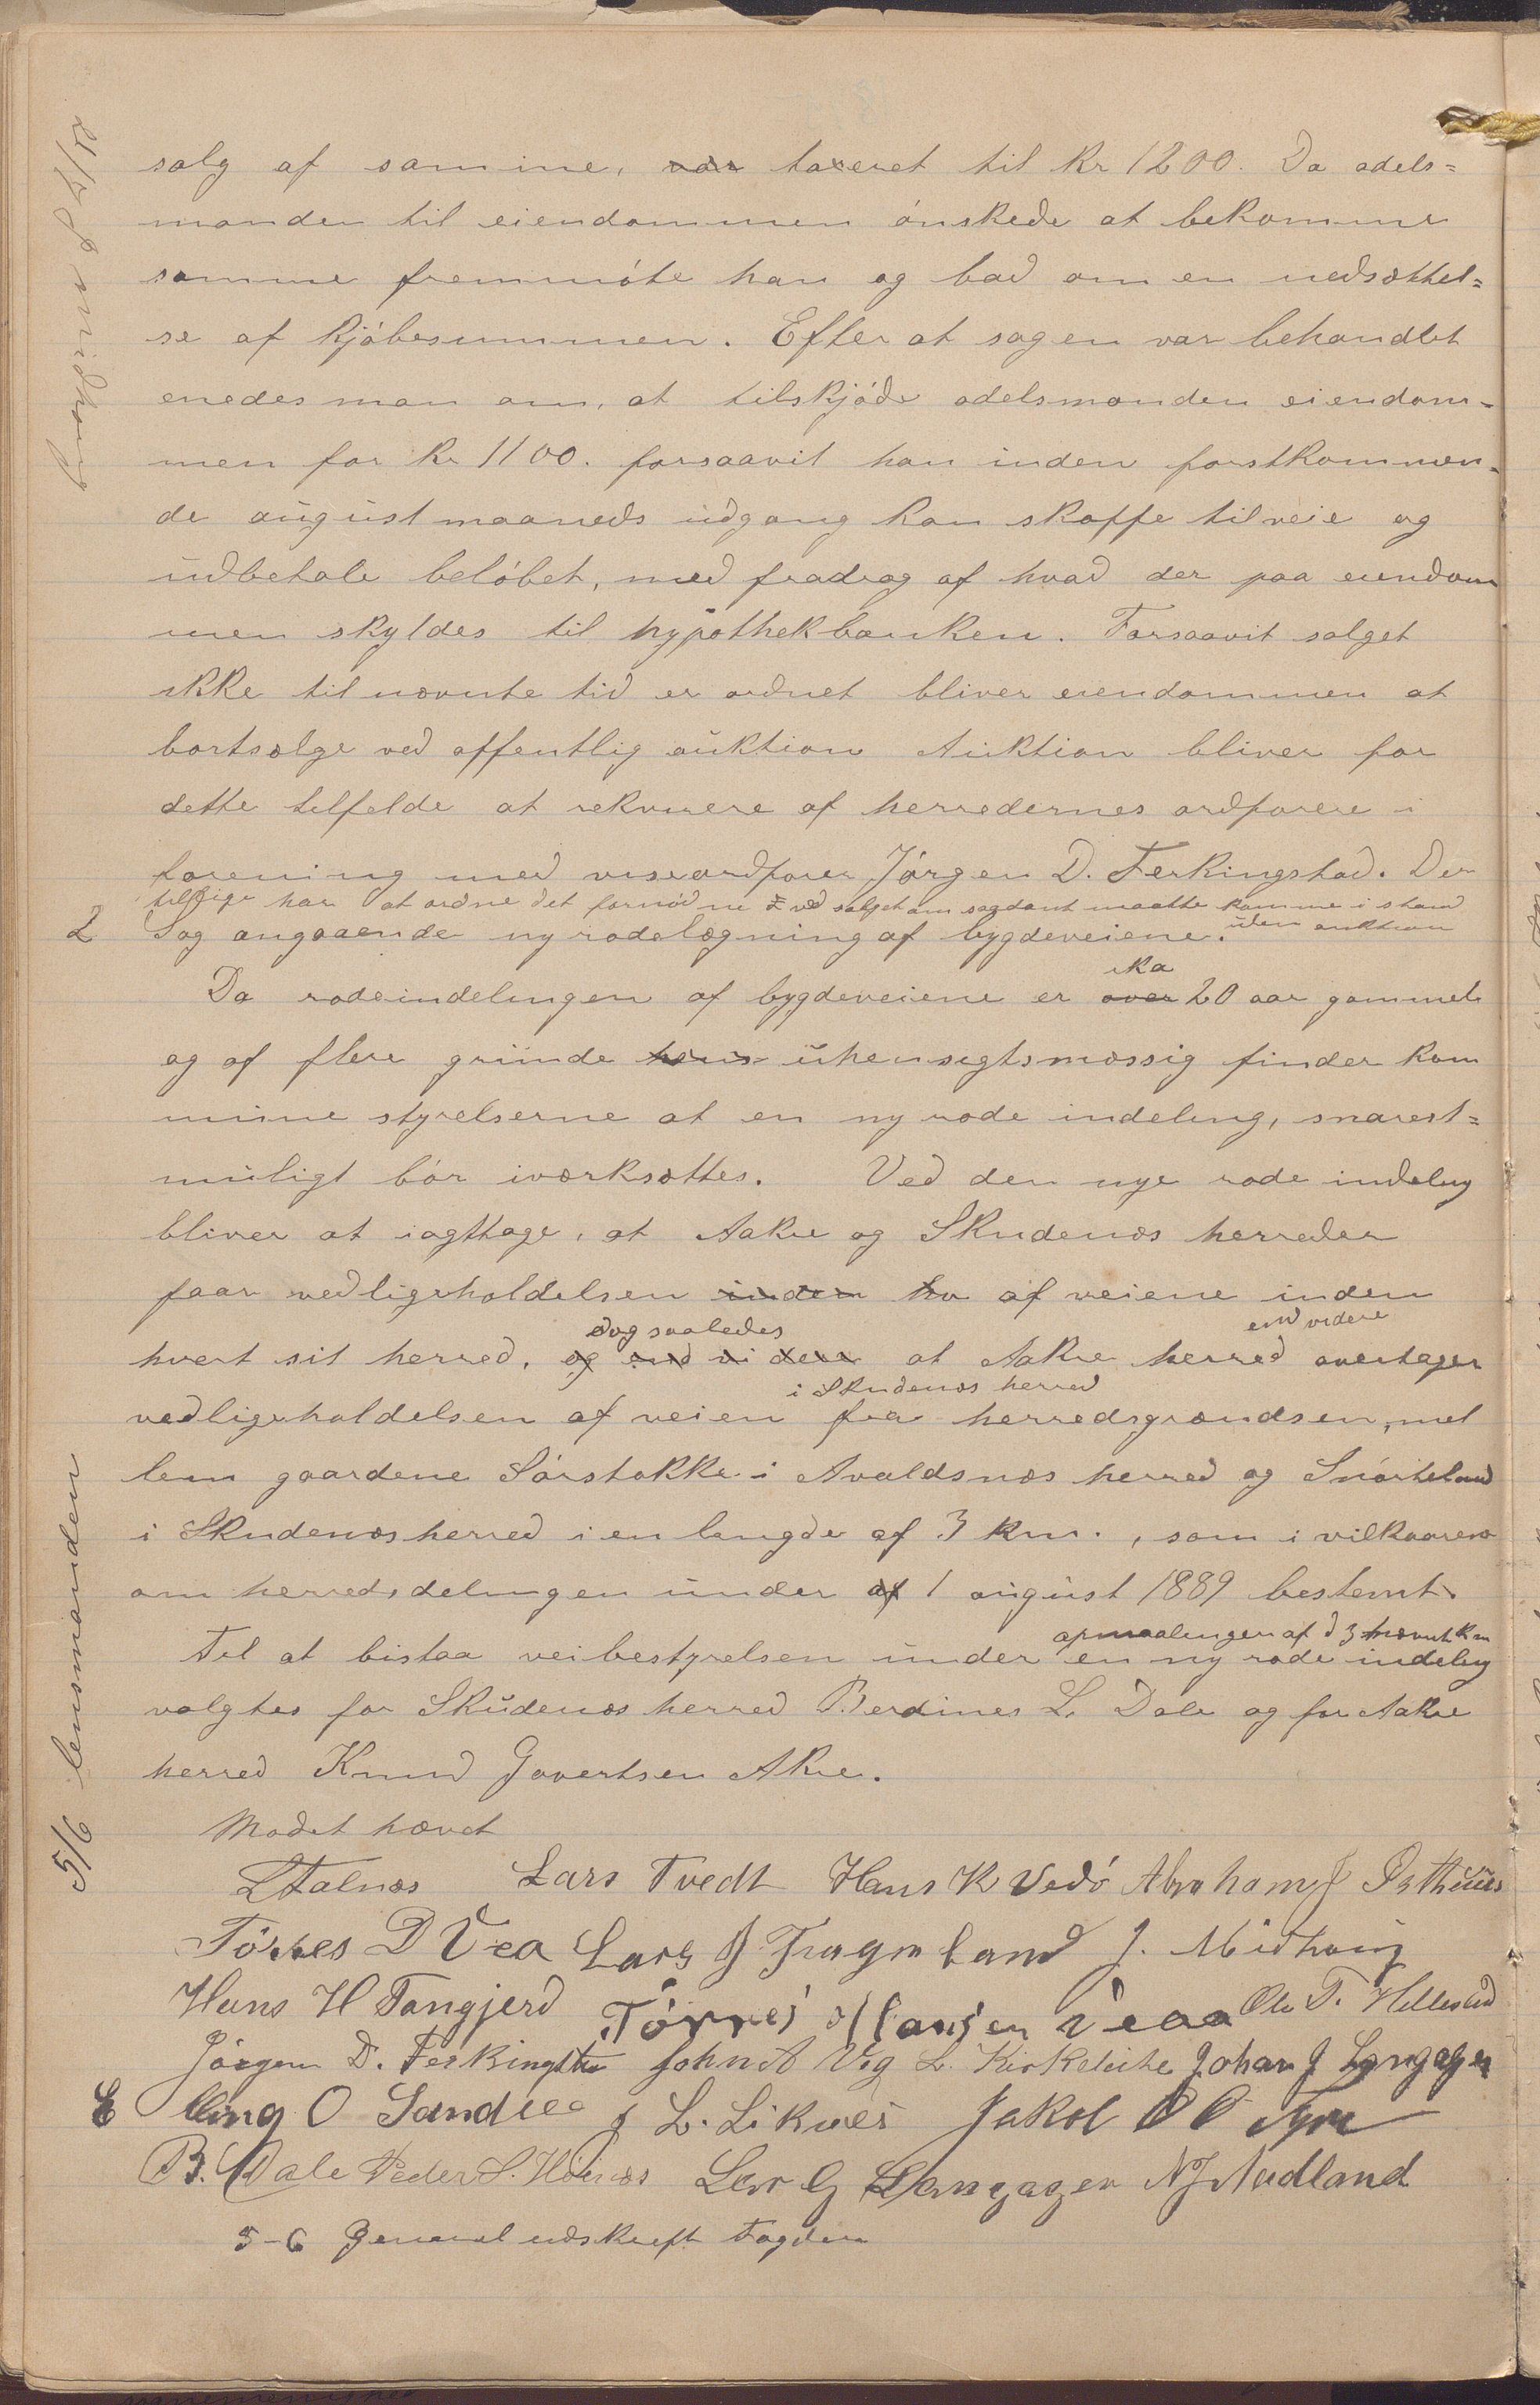 salg af samme, var taxeret til Kr 1200. Da odels=
manden til eiendommen ónskede at bekomme
samme fremmóte han og bad om en nedsættel=
se af kjóbesummen. Efter at sagen var behandlet
enedes man om, at tilskjóde odelsmanden eiendom-
men for Kr 1100. forsaavit han inden forstkommen-
de august maaneds udgang kan skaffe tilveie og
udbetale belóbet, med fradrag af hvad der paa eiendom
men skyldes til hypothekbanken. Forsaavit salget
ikke til nævnte tid er ordnet bliver eiendommen at
bortsælge ved offentlig auktion Auktion bliver for
dette tilfelde at rekvirere af herredernes ordforere i
forening med viseordforer Jórgen D. Ferkingstad. De
tillige har at ordne det fornódne ved salget om sogdant maatte komme i stand
uden auktion
2 Sag angaaende ny rodelægning af bygdeveiene.
ika
Da rodeindelingen af bygdeveiene er over 20 aar gammel
og af flere grunde uhensigtsmæssig finder kom
mune styrelserne at en ny rode indeling, snarest=
muligt bór iværksættes. Ved den nye rode indeling
bliver at iagttage, at Aakre og Skudenæs herreder
faar vedligeholdelsen inden hv af veiene inden
dog saaledes endvidere
hvert sit herred, og end videre at Aakre herred overtager
i Skudenæs herred
vedligeholdelsen af veien fra herredsgrændsen, mel
lem gaardene Sórstokke i Avaldsnæs herred og Snórteland
i Skudenæs herred i en længde af 3 km., som i vilkaarene
om herredsdelingen under af 1 august 1889 bestemt.
opmaalingen af d 3 nævnt Km
Til at bistaa veibestyrelsen under en ny rode indeling
valgtes for Skudenæs herred Berdines L. Dale og for Aakre
herred Knud Govertsen Akre.
Modet hævet
L Falnæs Lars Tvedt Hans K Vedó Abraham J Østhuus
Tórres D Vea Lars J Tragneland J. Midhaug
Hans H Tangjerd Tórres Hansen Veaa Ole T. Hillesland
Jórgen D. Ferkingstad John A Vig L. Kirkeleite Johan J Langager
Elling O Sandve J L. Liknes Jakob
B. Dale Peder S. Hóines Lar G Langager N J Nudland
5-6 General udskrift Fogden
5/6 lensmanden